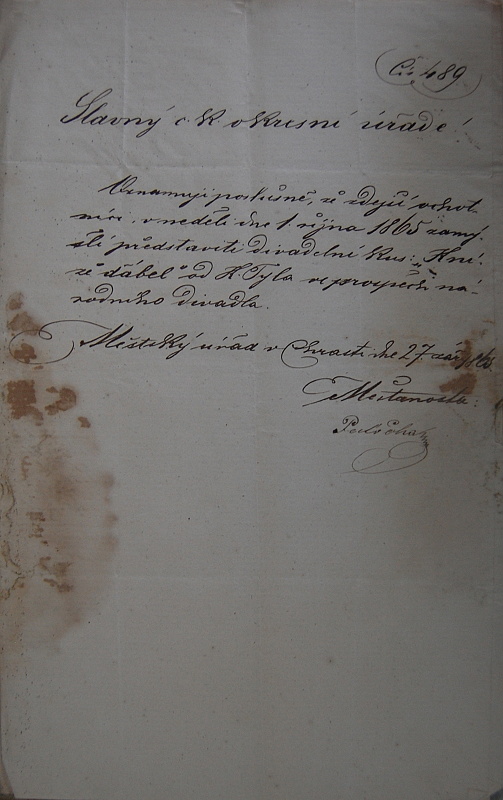 Čís 489.
Slavný c. k. okresní úřade!
Oznamuji poslušně, že zdejší ochot-
níci v neděli dne 1. října 1865 zamý-
šlí představiti divadelní kus: „Kní-
že ďábel“ od H. Tyla ve prospěch ná-
rodního divadla.
Městský úřad v Chrasti dne 27. září 865.
Měšťanosta: